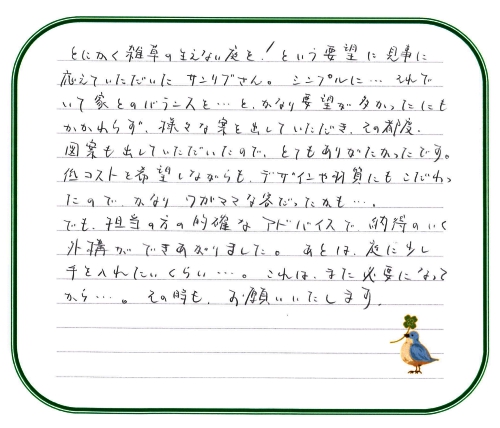 とにかく雑草の生えない庭を！という要望に見事に
応えていただいたサンリブさん。シンプルに…それで
いて家とのバランスを…と、かなり要望が多かったにも
かかわらず、様々な案を出していただき、その都度、
図案も出していただいたので、とてもありがたかったです。
低コストを希望しながらも、デザインや材質にもこだわっ
たので、かなりワガママな客だったかも…。
でも、担当の方の的確なアドバイスで、納得のいく
外構ができあがりました。あとは、庭に少し
手を入れたいくらい…。これは、また必要になって
から…。その時も、お願いいたします。